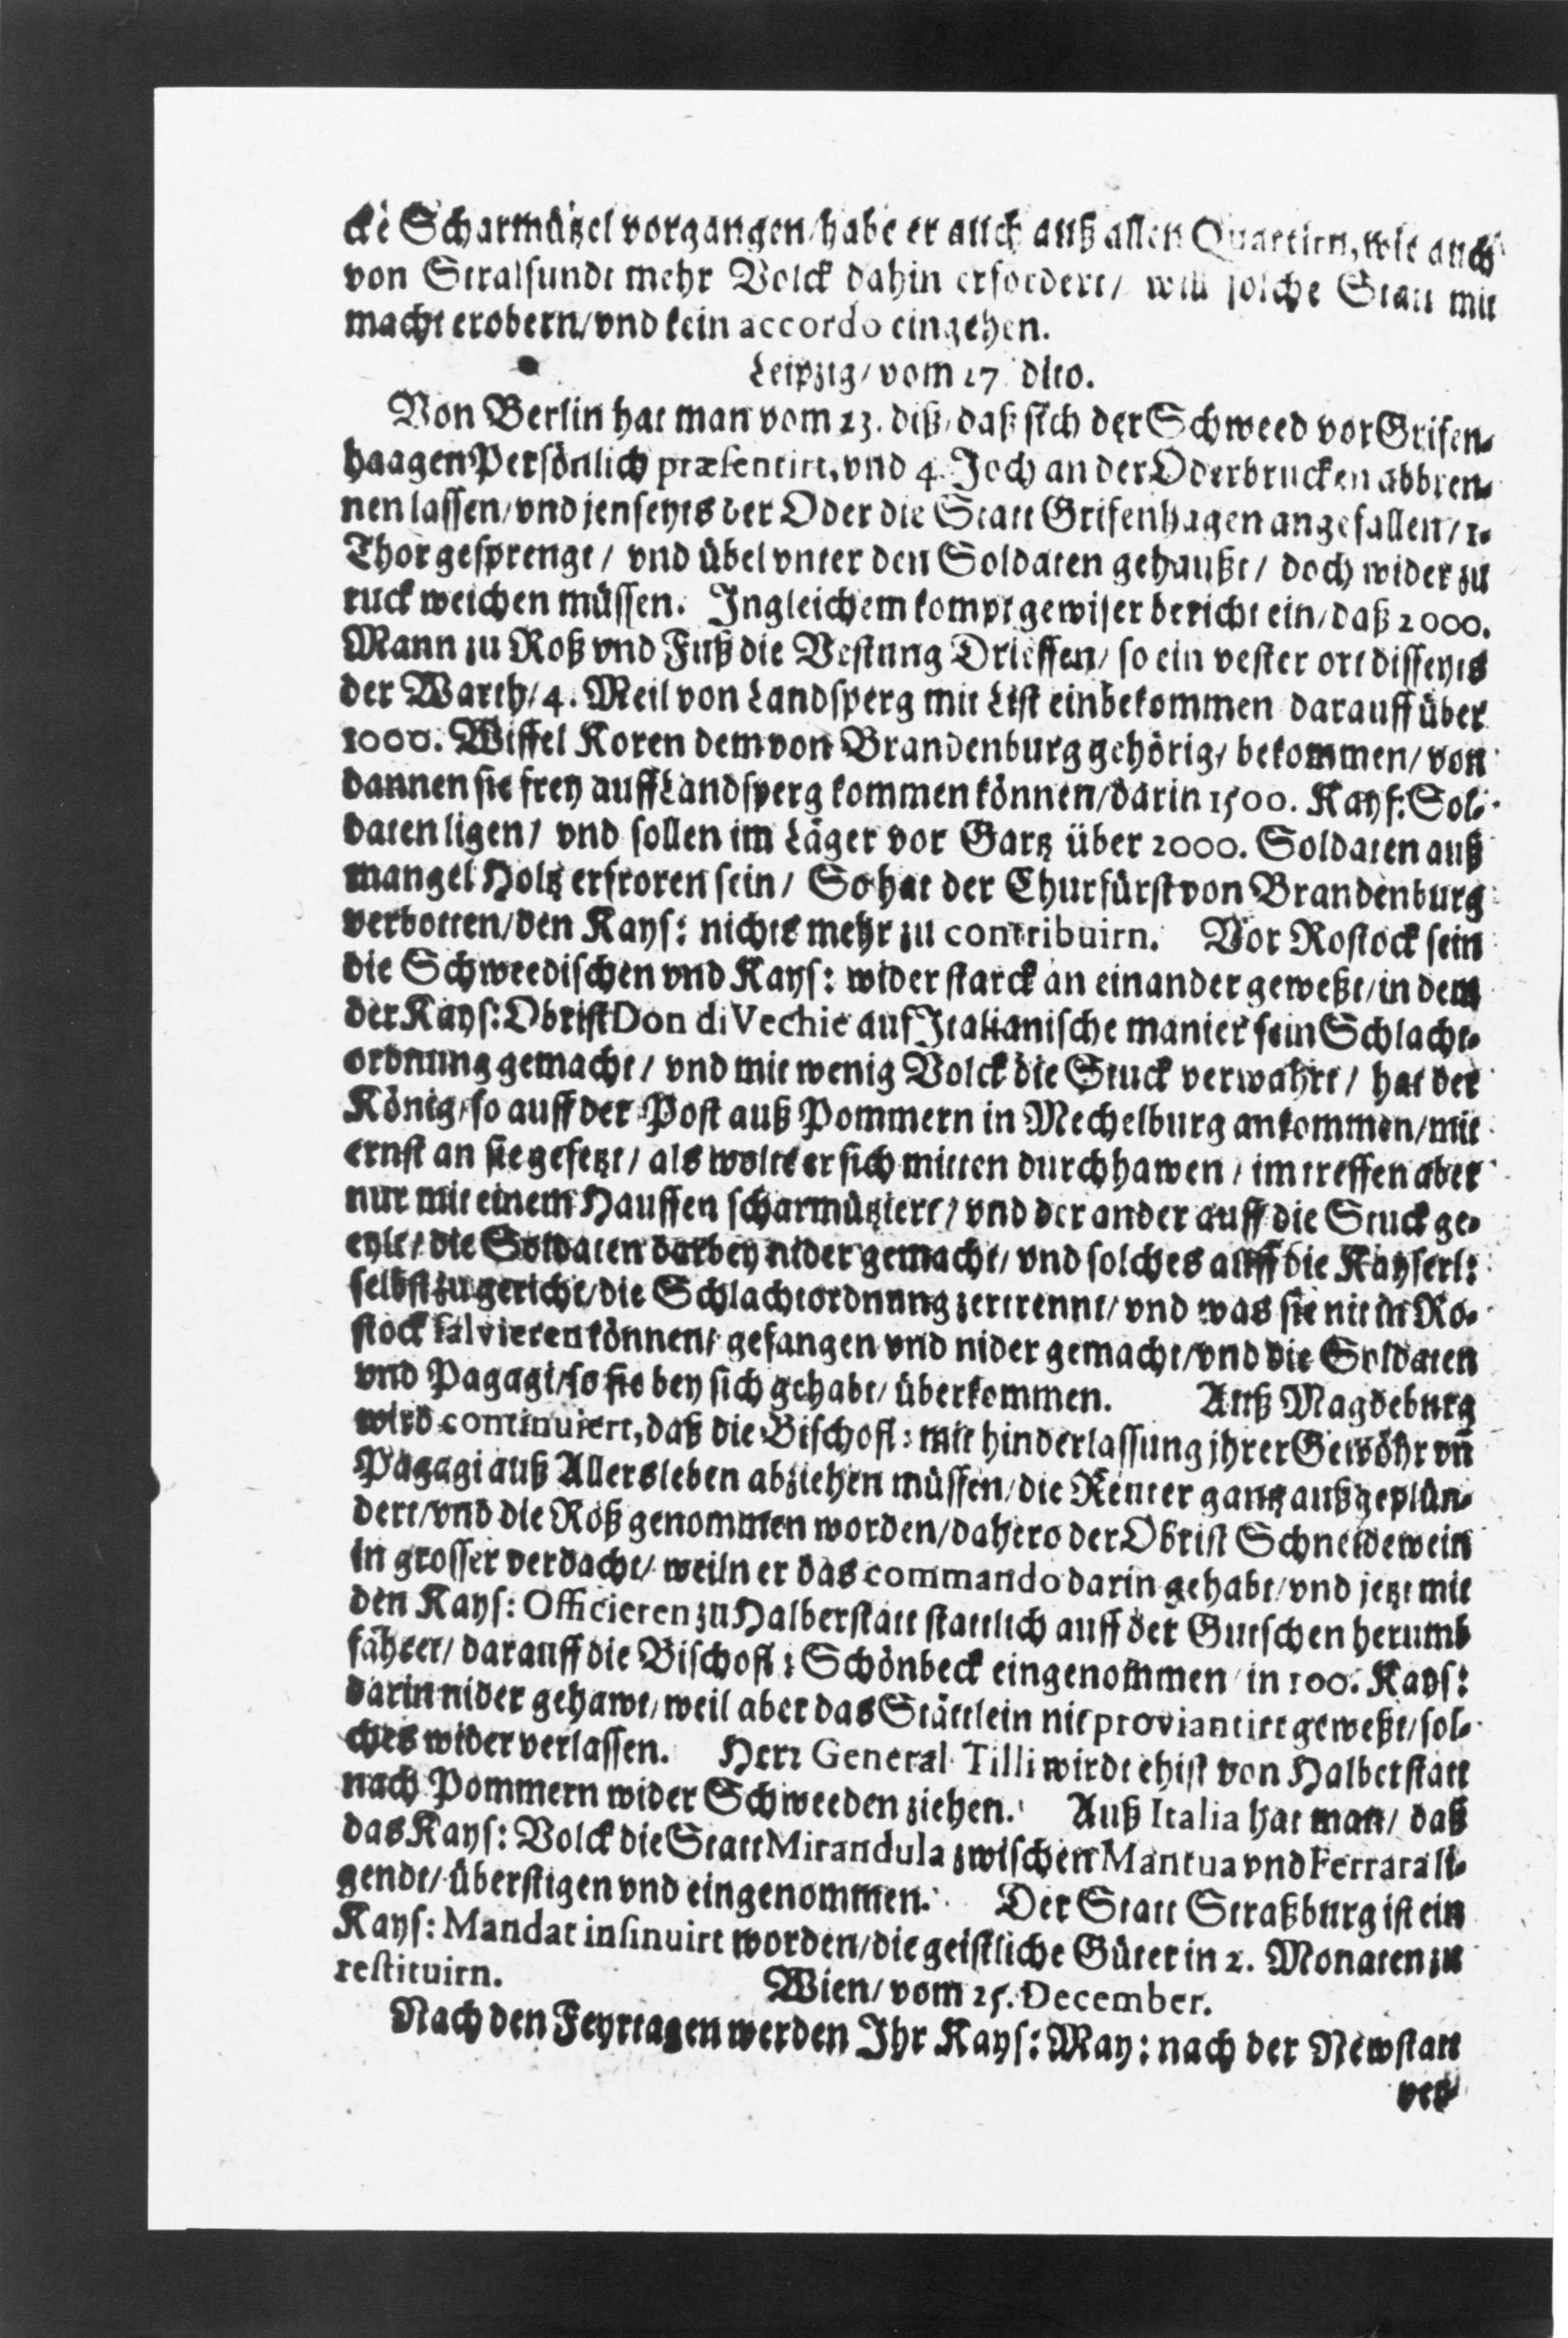 cke Scharmützel vorgangen/ habe er auch auß allen Quartirn, wie auch
von Stralsundt mehr Volck dahin erfordert/ will solche Statt mit
macht erobern/ vnd kein accordo eingehen.
Leipzig/ vom 27 dito.
Von Berlin hat man vom 23. diß/ daß sich der Schweed vor Grifen-
haagen Persönlich præsentirt, vnd 4. Joch an der Oderbrucken abbren-
nen lassen/ vnd jenseyts der Oder die Statt Grifenhagen angefallen/ 1.
Thor gesprengt/ vnd übel vnter den Soldaten gehaußt/ doch wider zu
ruck weichen müssen. Ingleichem kompt gewiser bericht ein/ daß 2000.
Mann zu Roß vnd Fuß die Vestung Drieffen/ so ein vester ort disseyts
der Warth/ 4. Meil von Landsperg mit List einbekommen darauff über
1000. Wiffel Koren dem von Brandenburg gehörig/ bekommen/ von
dannen sie frey auff Landsperg kommen können/ darin 1500. Kays: Sol-
daten ligen/ vnd sollen im Läger vor Gartz über 2000. Soldaten auß
mangel Holtz erfroren sein/ So hat der Churfürst von Brandenburg
verbotten/ den Kays: nichts mehr zu contribuirn. Vor Rostock sein
die Schweedischen vnd Kays: wider starck an einander geweßt/ in dem
der Kays: Obrist Don di Vechie auf Italianische manier sein Schlacht-
ordnung gemacht/ vnd mit wenig Volck die Stuck verwahrt/ hat der
König/ so auff der Post auß Pommern in Mechelburg ankommen/ mit
ernst an sie gesetzt/ als wolte er sich mitten durchhawen/ im treffen aber
nur mit einem Hauffen scharmütziert/ vnd der ander auff die Stuck ge-
eylt/ die Soldaten darbey nider gemacht/ vnd solches auff die Kayserl:
selbst zugericht/ die Schlachtordnung zertrennt/ vnd was sie nit in Ro-
stock salvieren können/ gefangen vnd nider gemacht/ vnd die Soldaten
vnd Pagagi/ so sie bey sich gehabt/ überkommen. Auß Magdeburg
wird continuiert, daß die Bischofl: mit hinderlassung jhrer Gewöhr vñ
Pagagi auß Allersleben abziehen müssen/ die Reuter gantz außgeplün-
dert/ vnd die Roß genommen worden/ dahero der Obrist Schneidewein
in grosser verdacht/ weiln er das commando darin gehabt/ vnd jetzt mit
den Kays: Officieren zu Halberstatt stattlich auff der Gutschen herumb
fähret/ darauff die Bischofl: Schönbeck eingenommen in 100. Kays:
darin nider gehawt/ weil aber das Stättlein nit proviantirt geweßt/ sol-
ches wider verlassen. Herr General Tilli wirdt ehist von Halberstatt
nach Pommern wider Schweeden ziehen. Auß Italia hat man/ daß
das Kays: Volck die Statt Mirandula zwischen Mantua vnd Ferrara li-
gendt/ überstigen vnd eingenommen. Der Statt Straßburg ist ein
Kays: Mandat insinuirt worden/ die geistliche Güter in 2. Monaten zu
restituirn.
Wien/ vom 25. December.
Nach den Feyrtagen werden Ihr Kays: May: nach der Newstatt
ver-